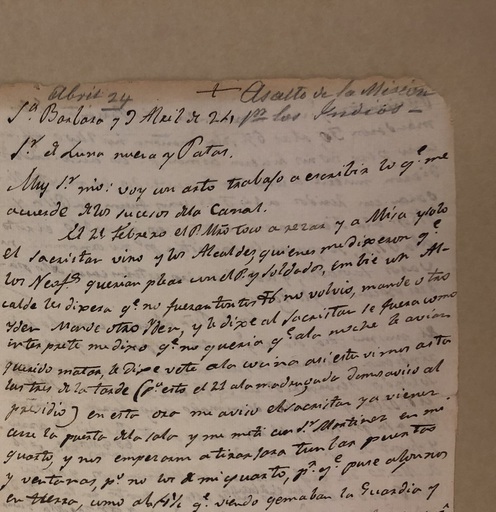 Abril 24 + Asalto de la Mision
Sta Barbara y 9 Abril de 24 pr los Indios
Sr d Luna nueva y Patas.
Muy Sr mio: voy con arto trabajo a escribir lo qe me
acuerde de los sucesos dela Canal.
El 21 febrero el P. Mro toco a rezar y a Misa y solo
el sacristan vino y los Alcaldes quienes me dixeron qe
los Neofs querian plear con el P. y soldados, embie un Al-
calde les dixera qe no fueran tontos no volvio, mande otro
Yden Mande otro Yden, y le dixe al sacristan se fuera como
interprete me dixo qe no queria qe ala noche le avian
querido matar, le dixe vete ala cocina asi estuvimos asta
las tres de la tarde (pr esto el 21 ala madrugada damos aviso al
presidio) en esta ora me aviso el sacristan ya vienen
cerre la puerta dela sala y me meti con Sr Martinez en mi
quarto, y nos empezaron a tirar para las puertas
y ventanas, po no los de mi quarto, pr qe puse algunos
en tierra, como alas 4½ qe viendo quemaban la Guardia y